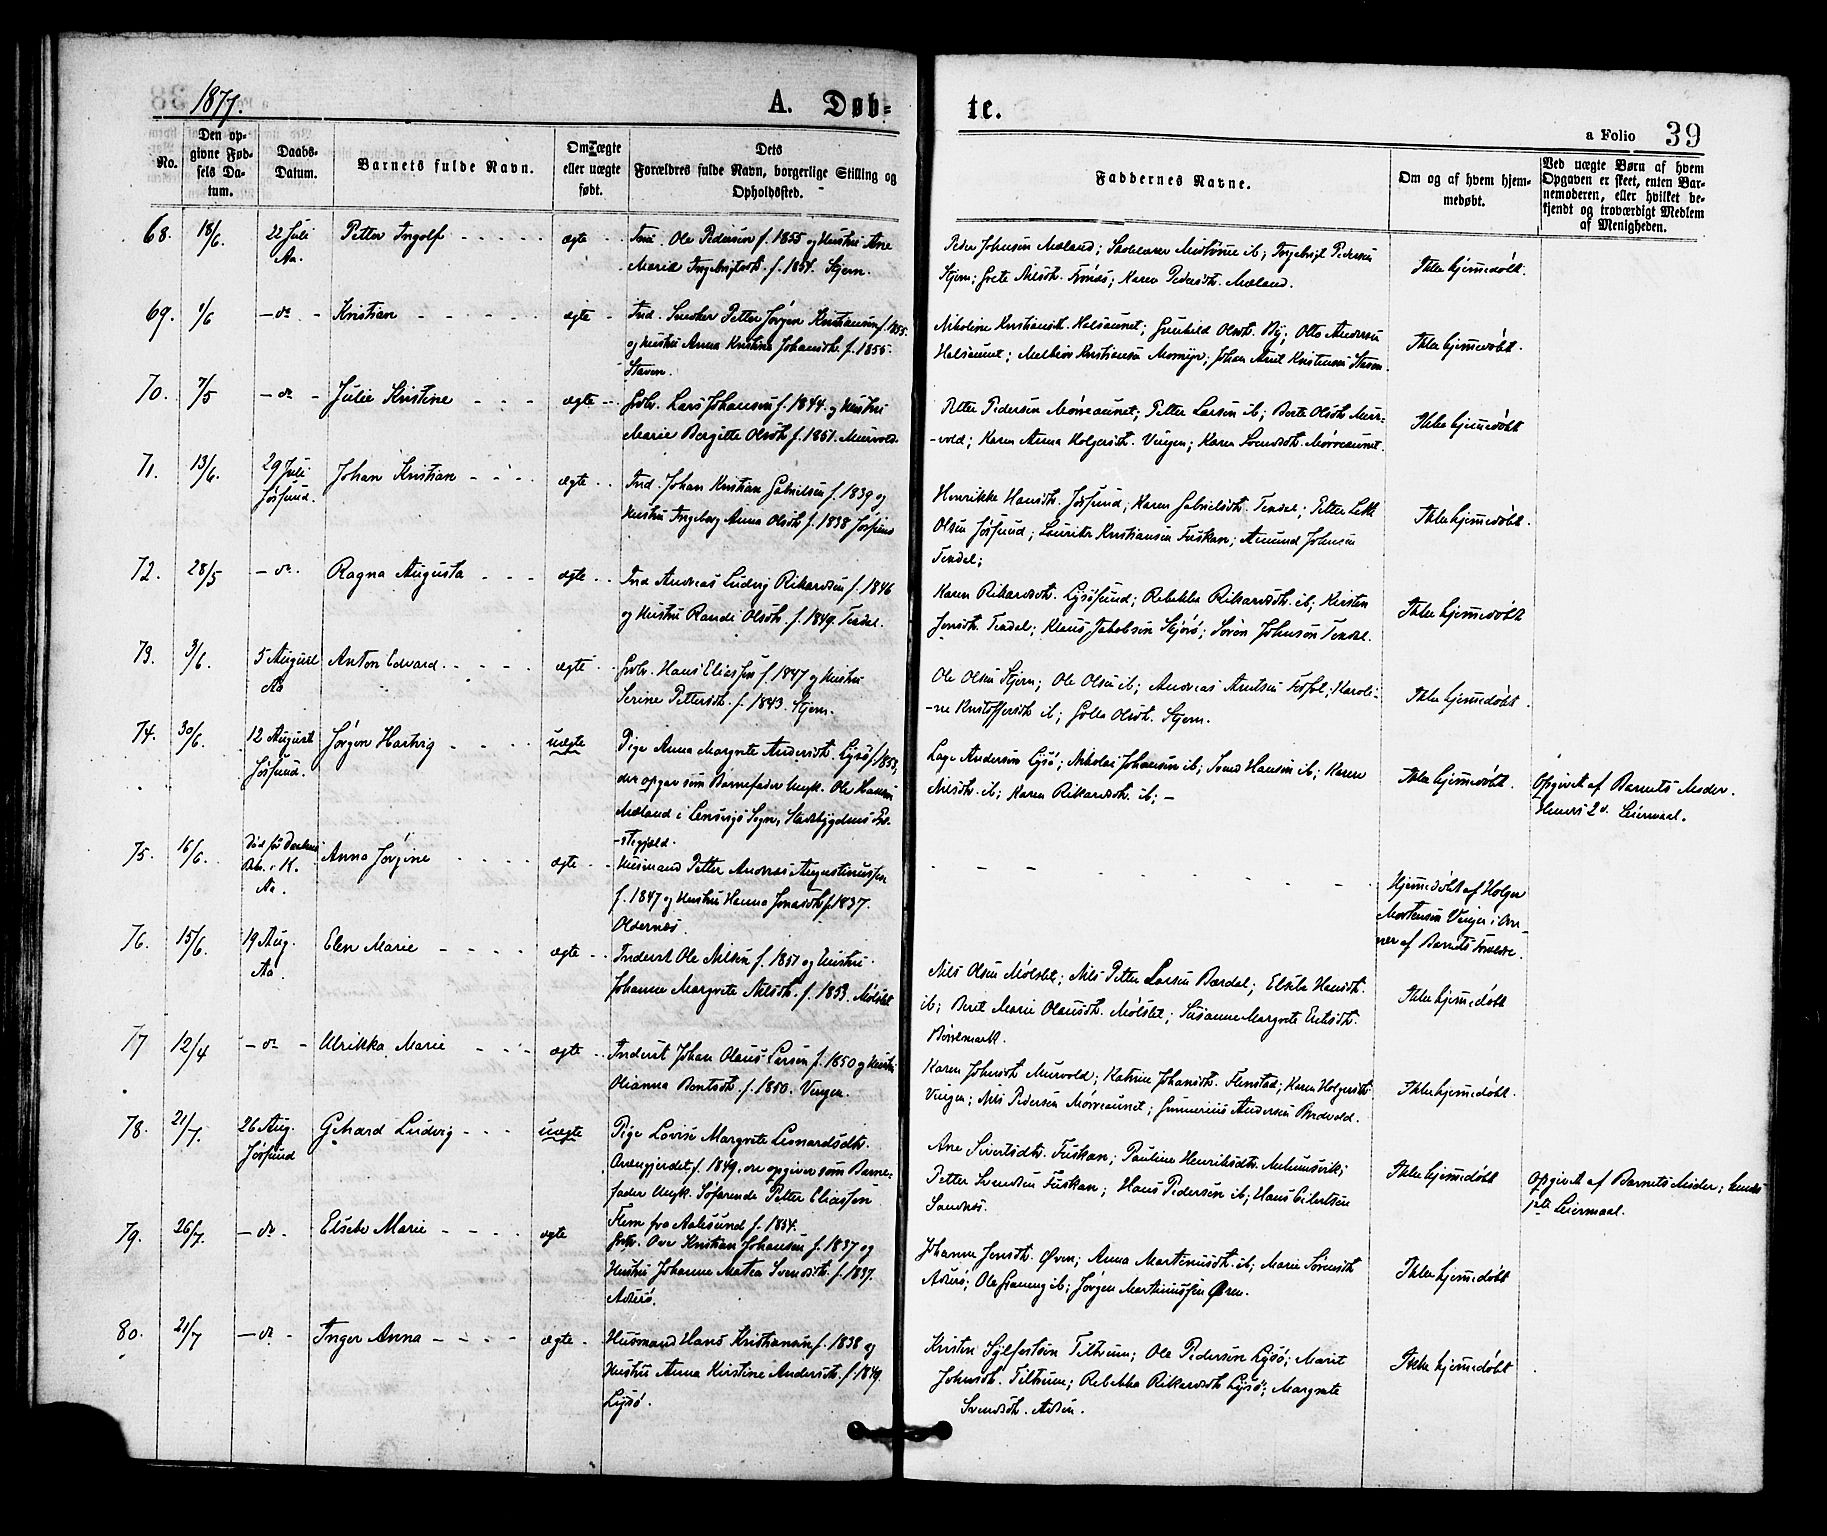 1877.
A. Døb-
te.
a Folio 39
No.
Den op-
givne Fød-
sels Da-
tum.
Daabs-
Datum.
Barnets fulde Navn.
Om ægte
eller uægte
født.
Dets
Forældres fulde Navn, borgerlige Stilling og
Opholdssted.
Faddernes Navne.
Om og af hvem hjem-
medøbt.
Ved uægte Børn af hvem
Opgaven er skeet, enten Bar-
nemoderen, eller hvilket be-
kjendt og troværdigt Medlem
af Menigheden.
68. 18/6. 22 Juli Petter Ingolf ægte Ind. Ole Pedersen f. 1855 og Hustru Ane
Aa. Maria Ingebrigtsdt. f. 1854. Stjern.
Peder Johnsen Mæland; ib; Ingebrigt Pedersen
Stjern; Grete Nilsdt. ; Karen Pedersdt. Mæland.
Ikke hjemmedøbt.
69. 1/6 - do - Kristian ægte Ind. Snedker Petter Jørgen Kristiansen f. 1855.
og Hustru Anna Kristine Johansdt. f. 1855.
Staven.
Nikoline Kristiansdt. Halsaunet; Gunhild Olsdt. By; Otto Andersen
Halsaunet; Melkior Kristiansen Momyr; Johan Arnt Kristensen Staven.
Ikke hjemmedøbt.
70. 7/5 - do - Julie Kristine ægte Grdbr. Lars Johansen f. 1844. og Hustru
Marie Bergitte Olsdt. f. 1851. Murvold.
Petter Pedersen Mørreaunet; Petter Larsen ib; Berte Olsdt. Mur-
-vold; Karen Anna Holgersdt. Vingen; Karen Svendsdt. Mørreaunet.
Ikke hjemmedøbt
71. 13/6. 29 Juli Johan Kristian ægte Ind. Johan Kristian Gabrielsen f. 1839 og
Jøssund. Hustru Ingeborg Anna Olsdt. f. 1838 Jøssund
Henrikke Hansdt. Jøssund; Karen Gabrielsdt. Teksdal; Petter
Olsen Jøssund; Kristiansen Fuskan; Amund Johnsen
Teksdal;
Ikke hjemmedøbt.
72. 28/5 - do - Ragna Augusta ægte Ind Andreas Ludvig Rikardsen f. 1846
og Hustru Randi Olsdt. f. 1849. Teksdal.
Karen Rikardsdt. Lysøsund; Rebekka Rikardsdt. ib; Kirsten
Jensdt. Teksdal; Klaus Jakobsen ; Søren Johnsen Teksdal.
Ikke hjemmedøbt
73. 3/6. 5 August Anton Edvard ægte Grdbr. Hans Eliassen f. 1847 og Hustru
Aa Serine Pettersdt. f. 1843. Stjern.
Ole Olsen Stjern; Ole Olsen ib; Andreas Arntsen ; Karoli-
-ne Kristoffersdt. ib; Olsdt. Stjern.
Ikke hjemmedøbt.
74. 30/6. 12 August Jørgen Hartvig uægte Pige Anna Margrete Andersdt. Lysø f. 1853,
Jøssund. der opgav som Barnefader Ungk. Ole Hansen
Mæland i Sogn, Stadsbygdens Præ-
-stegjæld.
Andersen Lysø; Nikolai Johansen ib; Svend Hansen ib; Karen
Nilsdt. ib; Karen Rikardsdt. ib; -
Ikke hjemmedøbt.
Opgivet af Barnets Moder.
Hendes 2d. Leiermaal.
75. 16/6. Død før Anna Jørgine ægte Husmand Petter Andreas Augustinussen
Aa. f. 1847 og Hustru Hanna Jonasdt. f. 1837.
Oldernæs.
Hjemmedøbt af Holger
Mortensen Vingen i
af Barnets Forældre.
76. 15/6. 19 Aug. Elen Marie ægte Inderst Ole Nilsen f. 1851 og Hustru
Aa. Johanne Margrete Nilsdt. f. 1853. Mølslet
Nils Olsen Mølslet; Nils Petter Larsen Bærdal; Hansdt.
ib; Beret Marie Olausdt. Mølslet; Susanne Margrete Eriksdt.
Børremark.
Ikke hjemmedøbt
77 12/4 - do - Ulrikka Marie ægte Inderst Johan Olaus Larsen f. 1850 og Hustru
Olianna Berntsdt. f. 1850. Vingen.
Karen Johnsdt. Murvold; Katrine Johansdt. Flenstad; Karen Holgersdt.
Vingen; Nils Pedersen Mørreaunet; Gunnerius Andersen Bredvold.
Ikke hjemmedøbt.
78. 21/7. 26 Aug. Gehard Ludvig uægte Pige Lovise Margrete Leonardsdt.
Jøssund f. 1849, der opgiver som Barne-
fader Ungk. Søfarende Petter Eliassen
Flem fra Aalesund f. 1854.
Ane Sivertsdt. Fuskan; Pauline Henriksdt. ;
Petter Svendsen Fuskan; Hans Pedersen ib; Hans Eilertsen
Sandnæs.
Ikke hjemmedøbt
Opgivet af Barnets Moder; hendes
1ste Leiermaal.
79. 26/7. - do - Elsebe Marie ægte Grdbr. Ove Kristian Johansen f. 1837 og
Hustru Johanne Matea Svendsdt. f. 1837.
Askerø.
Johanna Jensdt. Øren; Anna Martinusdt. ib; Marie Sørensdt.
Askerø; Ole ib; Jørgen Martinussen Øren.
Ikke hjemmedøbt
80. 21/7 - do - Inger Anna ægte Husmand Hans Kristiansen f. 1838 og
Hustru Anna Kirstine Andersdt. f. 1849.
Lysø.
Kristen Sylfestsen Tiltrum; Ole Pedersen Lysø; Marit
Johnsdt. Tiltrum; Rebekka Rikardsdt. Lysø; Margrete
Svendsdt.
Ikke hjemmedøbt